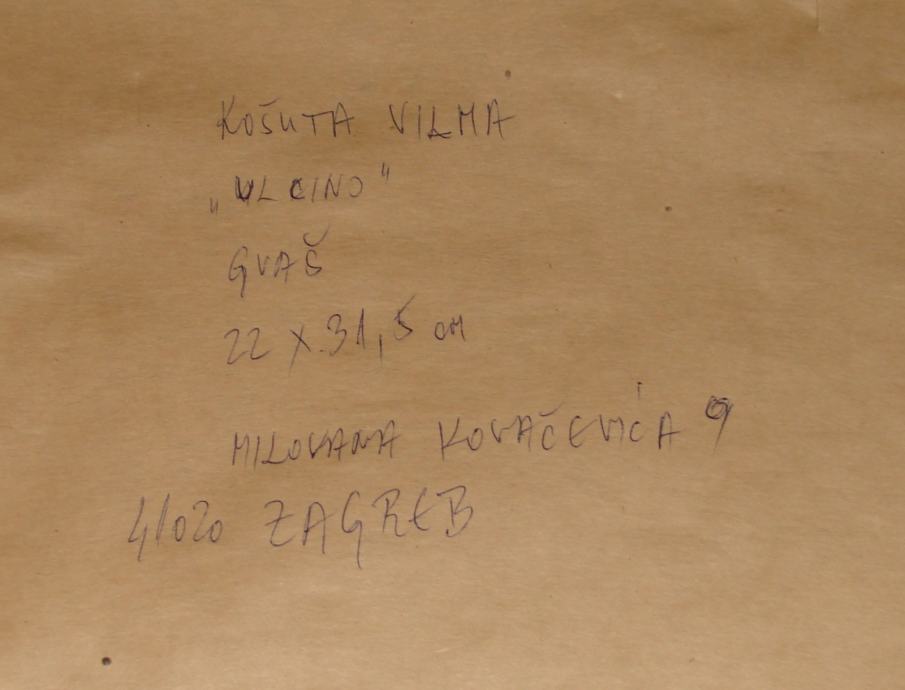 KOŠUTA VILMA
„ULCINO"
GVAŠ
22 X 31,5 cm
MILOVANA KOVAČEVIĆA 9
41020 ZAGREB